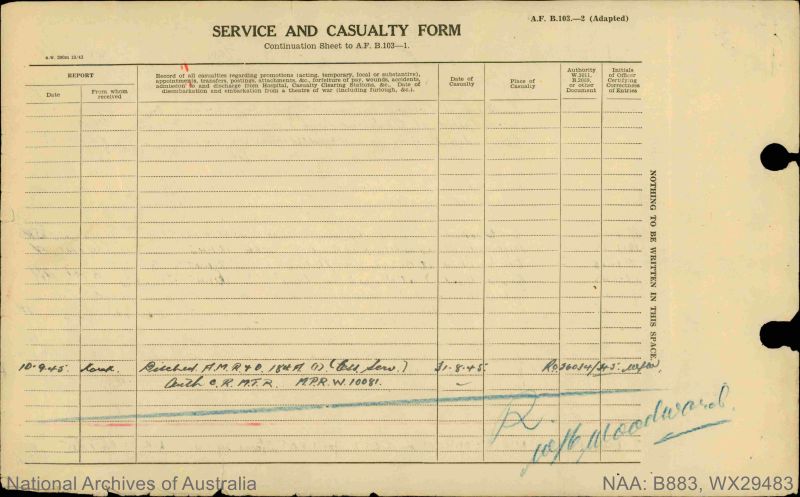 A.F. B.103.—2 (Adapted)
SERVICE AND CASUALTY FORM
Continuation Sheet to A.F. B.103—1.
REPORT
Date
From whom received
Record of all casualties regarding promotions (acting, temporary, local or substantive),
appointments, transfers, postings, attachments, &c., forfeiture of pay, wounds, accidents,
admission to and discharge from Hospital, Casualty Clearing Stations, &c. Date of
disembarkation and embarkation from a theatre of war (including furlough, &c.).
Date of Casualty
Place of Casualty
Authority W.3011, B.2069, or other Document
Initials of Officer Certifying Correctness of Entries
NOTHING TO BE WRITTEN IN THIS SPACE.
10-9-45. A.M.R.&O. 31-8-45.
C.R.M.T.R. M.P.R.W. 10081.
R.
Woodward.
National Archives of Australia
NAA: B883, WX29483